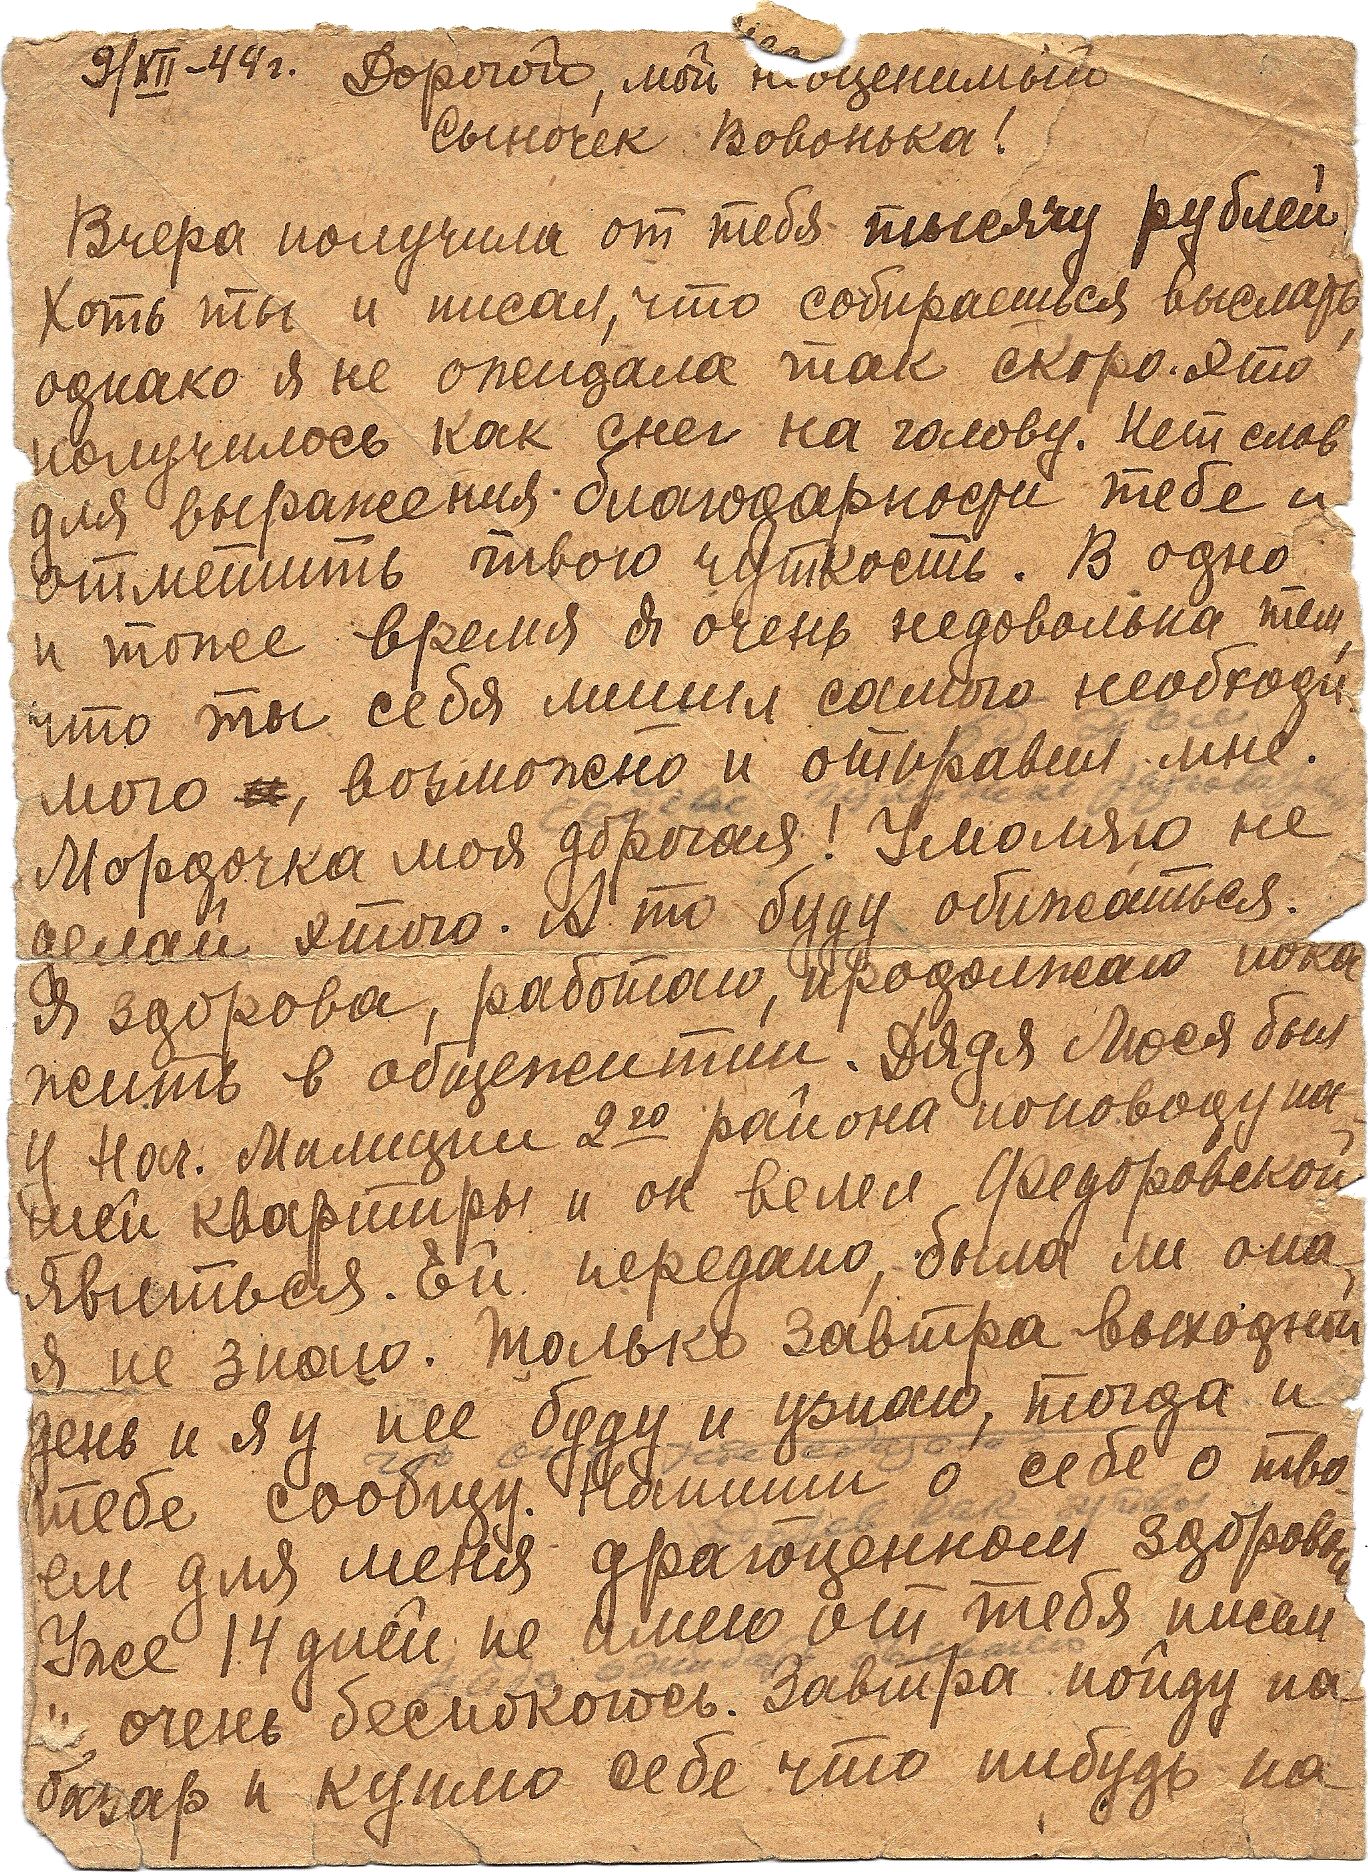 9/XII-44г. Дорогой, мой неоценимый
Сыночек Вовонька!
Вчера получила от тебя тысячу рублей,
Хоть ты и писал, что собираешься выслать,
однако я не ожидала так скоро. Это
получилось как снег на голову. Нет слов
для выражения благодарности тебе и
отметить твою чуткость. В одно
и тоже время я очень недовольна тем,
что ты себя лишил самого необходи
мого, возможно и отправил мне.
Мордочка моя дорогая! Умоляю не
делай этого. А то буду обижаться.
Я здорова, работаю, продолжаю пока
жить в общежитии. Дядя Люся был
у Нач. Милиции 2го района поповоду на-
шей квартиры и он велел Федоровской
явиться. Ей передано, была ли она,
я не знаю. Только завтра выходной
день и я у нее буду и узнаю, тогда и
тебе сообщу. Напиши о себе о тво-
ем для меня драгоценном здоровьи
Уже 14 дней не имею от тебя писем
и очень беспокоюсь. Завтра пойду на
базар и куплю себе что нибудь на